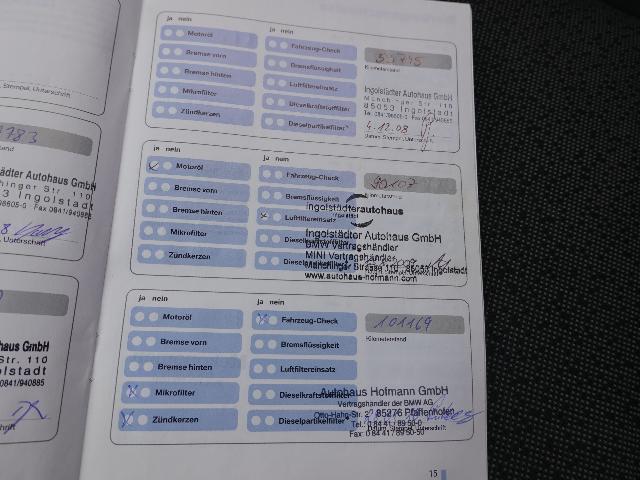 Stempel, Unterschrift
ja nein
Motoröl
Bremse vorn
Bremse hinten
Mikrofilter
Zündkerzen
ja nein
Fahrzeug-Check
Bremsflüssigkeit
Luftfiltereinsatz
Dieselkraftstofffilter
Dieselpartikelfilter*
Kilometerstand
Ingolstädter Autohaus GmbH
Manchinger Str. 110
85053 Ingolstadt
4.12.08
Datum, Stempel, Unterschrift
ja nein
Motoröl
Bremse vorn
Bremse hinten
Mikrofilter
Zündkerzen
ja nein
Fahrzeug-Check
Bremsflüssigkeit
Luftfiltereinsatz
90107
Kilometerstand
ingolstädterautohaus
Ingolstädter Autohaus GmbH
BMW Vertragshändler
MINI Vertragshändler
Manchinger Strasse 110 85053 Ingolstadt
www.autohaus-hofmann.com
ja nein
Motoröl
Bremse vorn
Bremse hinten
Mikrofilter
Zündkerzen
ja nein
Fahrzeug-Check
Bremsflüssigkeit
Luftfiltereinsatz
Dieselkraftstofffilter
Dieselpartikelfilter*
101169
Kilometerstand
Autohaus Hofmann GmbH
Vertragshändler der BMW AG
Otto-Hahn-Str. 2 85276 Pfaffenhofen
Tel.: 0 84 41 / 89 50-0
Fax: 0 84 41 / 89 50-50
Datum, Stempel, Unterschrift
15
städter Autohaus GmbH
hinger Str. 110
3 Ingolstadt
Fax 0841/940885
Unterschrift
haus GmbH
Str. 110
olstadt
0841/940885